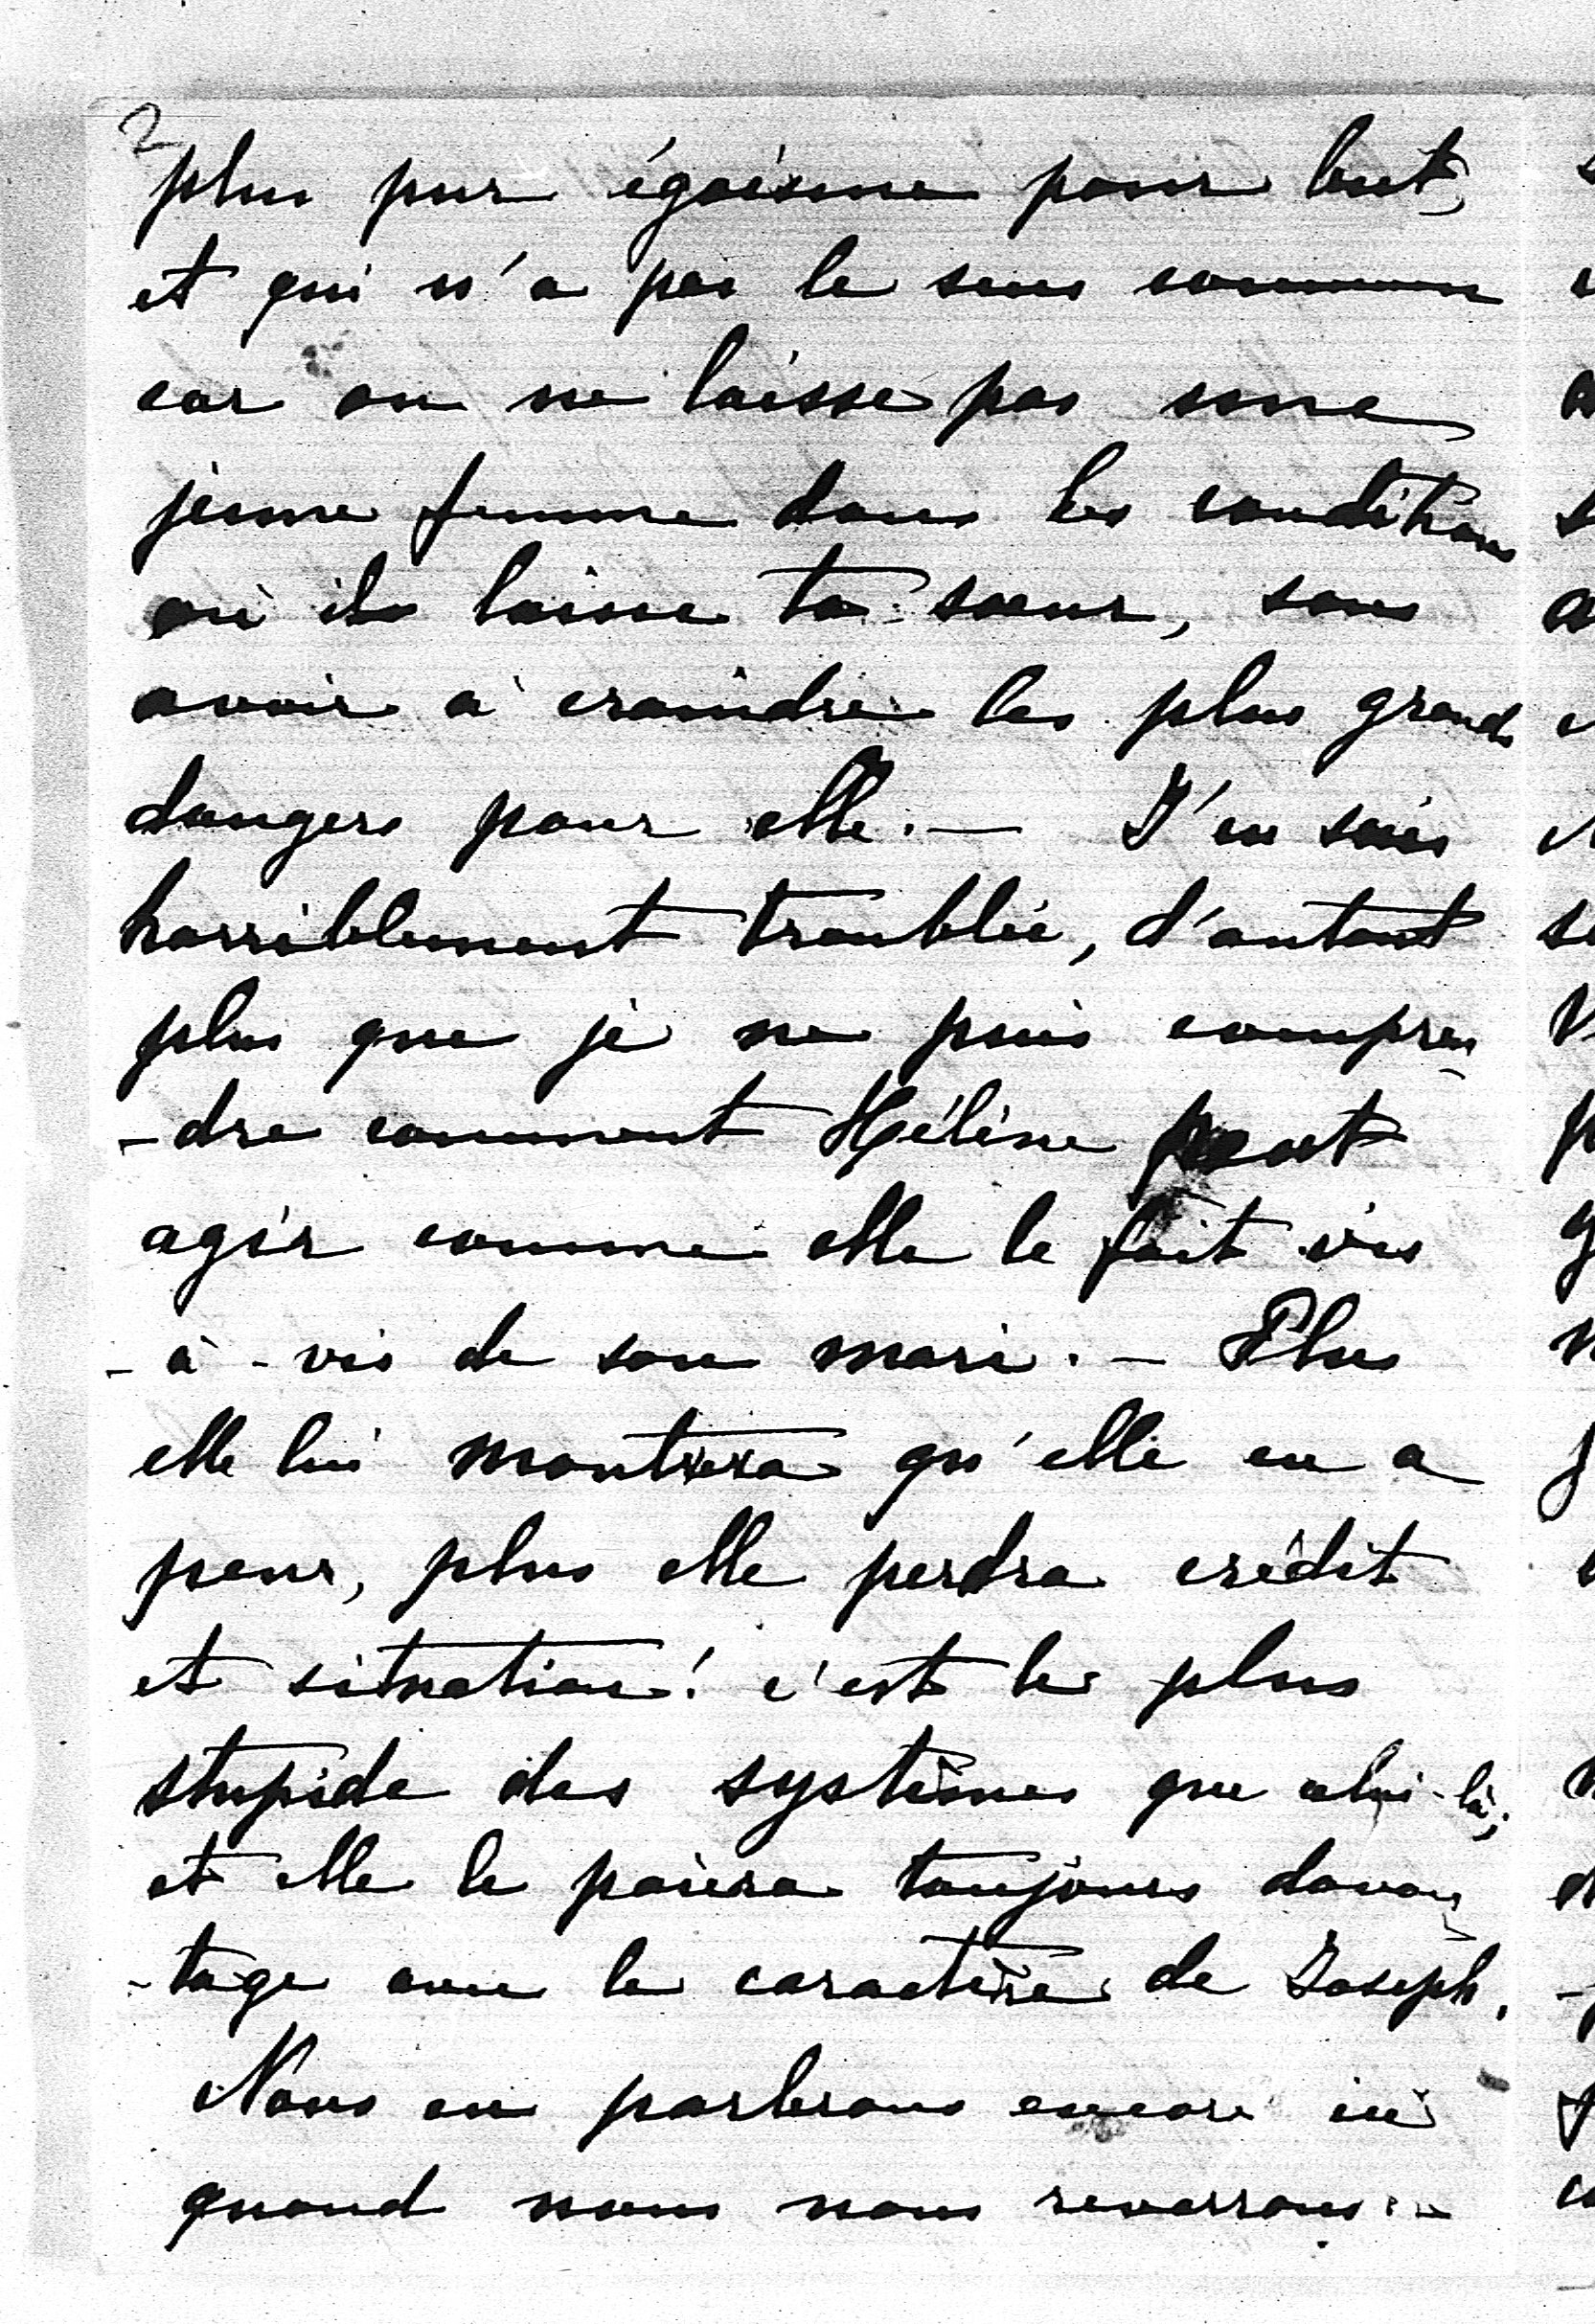 2
plus pur égoïsme pour but,
et qui n'a pas le sens commun
car on ne laisse pas une
jeune femme dans les conditions
où ils laisse ta sœur, sans
avoir à craindre les plus grands
dangers pour elle. — J'en suis
horriblement troublée, d'autant
plus que je ne puis compren
-dre comment Hélène peut
agir comme elle le fait vis
-à-vis de son mari. — Plus
elle lui montrera qu'elle en a
peur, plus elle perdra crédit
et situation! c'est le plus
stupide des systèmes que celui-là;
et elle le paiera toujours davan
-tage avec le caractère de Joseph.
Nous en parlerons encore ici
quand nous nous reverrons. —